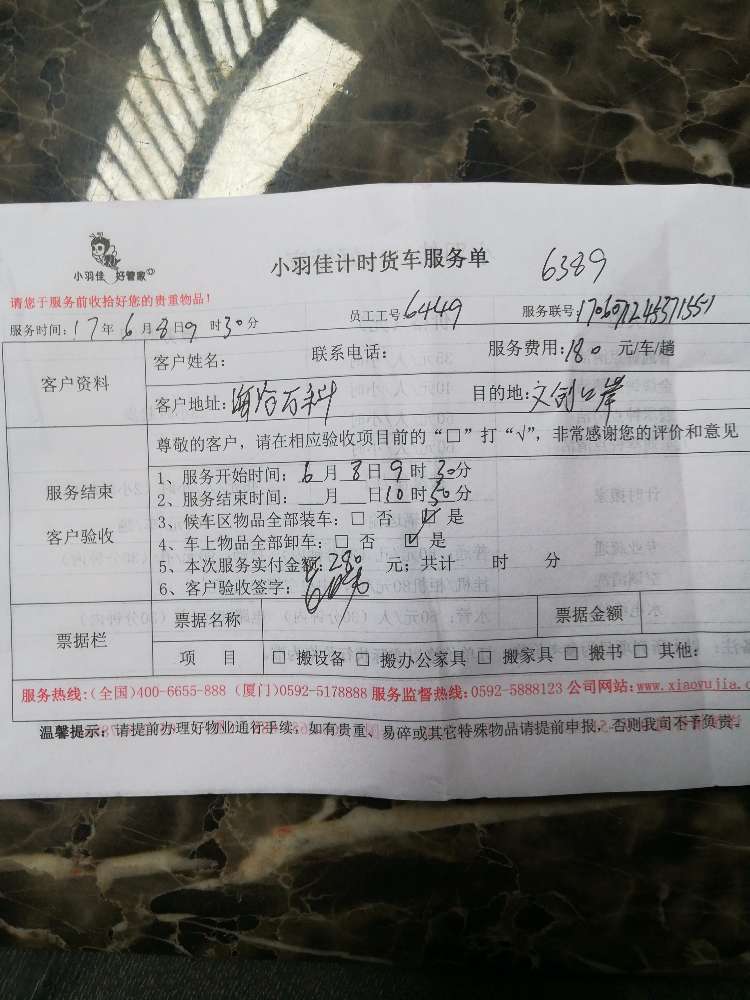 小羽佳 好管家
小羽佳计时货车服务单 6389
请您于服务前收拾好您的贵重物品!
服务时间:17年6月8日9时30分 员工工号:6449 服务联号:
客户资料
客户姓名: 联系电话: 服务费用:180 元/车/趟
客户地址:海沧万科 目的地:文创口岸
服务结束
客户验收
尊敬的客户，请在相应验收项目前的“□”打“√”，非常感谢您的评价和意见
1、服务开始时间:6月8日9时30分
2、服务结束时间:__月__日10时50分
3、候车区物品全部装车:□ 否 ☑ 是
4、车上物品全部卸车:□ 否 ☑ 是
5、本次服务实付金额:280元; 共计 时 分
6、客户验收签字:
票据栏
票据名称 票据金额
项 目 □ 搬设备 □ 搬办公家具 □ 搬家具 □ 搬书 □ 其他:
服务热线:(全国)400-6655-888 (厦门)0592-5178888 服务监督热线:0592-5888123 公司网站:www.xiaoyujia.c
温馨提示: 请提前办理好物业通行手续，如有贵重、易碎或其它特殊物品请提前申报，否则我司不予负责。